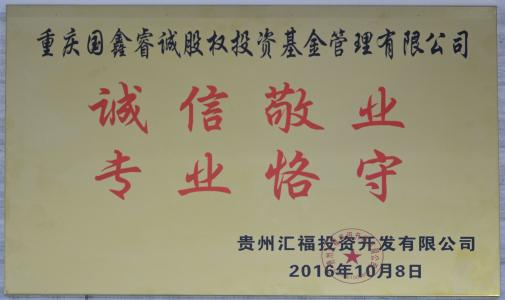 重庆国鑫睿诚股权投资基金管理有限公司
诚信敬业
专业恪守
贵州汇福投资开发有限公司
2016年10月8日